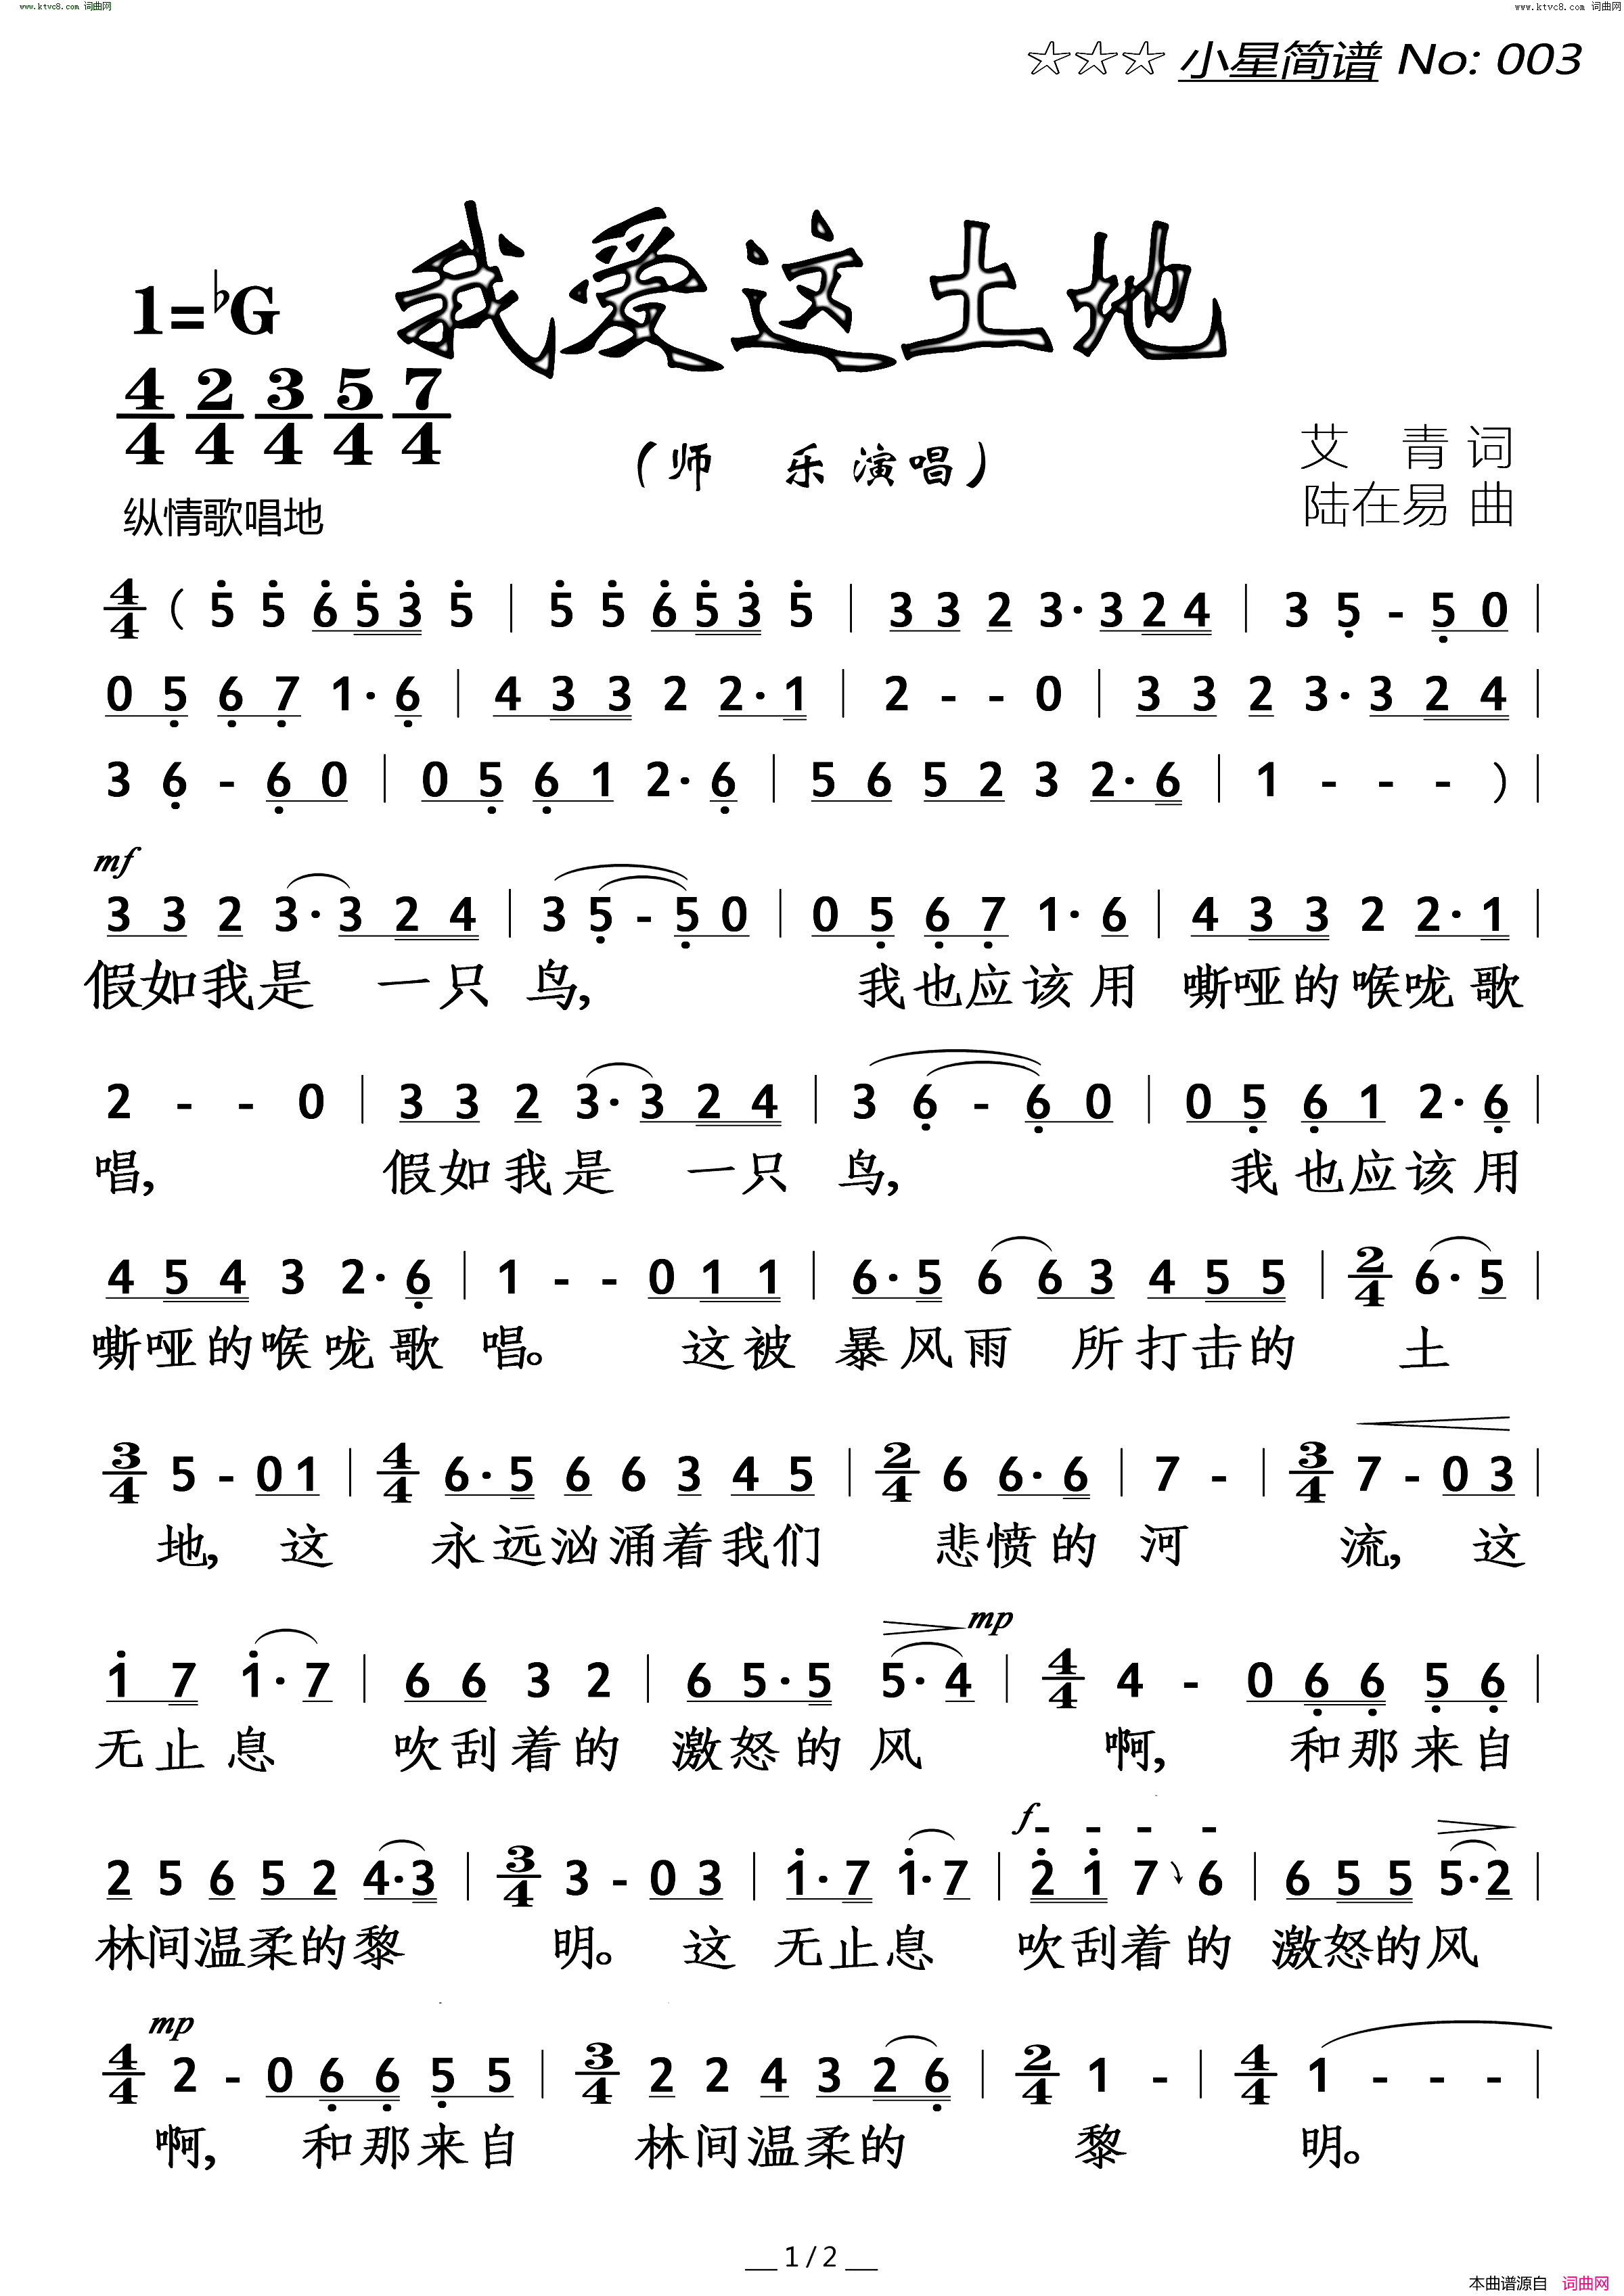 www.ktvc8.com 词曲网 www.ktvc8.com 词曲网
☆☆☆ 小星简谱 No: 003
我爱这土地
1=♭G
4/4 2/4 3/4 5/4 7/4
（师 乐 演唱）
艾 青 词
纵情歌唱地
陆在易 曲
4/4 ( 5 5 6 5 3 5 | 5 5 6 5 3 5 | 3 3 2 3· 3 2 4 | 3 5 - 5 0 |
0 5 6 7 1· 6 | 4 3 3 2 2· 1 | 2 - - 0 | 3 3 2 3· 3 2 4 |
3 6 - 6 0 | 0 5 6 1 2· 6 | 5 6 5 2 3 2· 6 | 1 - - - ) |
mf
3 3 2 3· 3 2 4 | 3 5 - 5 0 | 0 5 6 7 1· 6 | 4 3 3 2 2· 1 |
假如我是 一只 鸟, 我也应该用 嘶哑的喉咙歌
2 - - 0 | 3 3 2 3· 3 2 4 | 3 6 - 6 0 | 0 5 6 1 2· 6 |
唱, 假如我是 一只 鸟, 我也应该用
4 5 4 3 2· 6 | 1 - - 0 1 1 | 6· 5 6 6 3 4 5 5 | 2/4 6· 5 |
嘶哑的喉咙歌 唱。 这被 暴风雨 所打击的 土
3/4 5 - 0 1 | 4/4 6· 5 6 6 3 4 5 | 2/4 6 6· 6 | 7 - | 3/4 7 - 0 3 |
地, 这 永远汹涌着我们 悲愤的 河 流, 这
mp
1 7 1· 7 | 6 6 3 2 | 6 5· 5 5· 4 | 4/4 4 - 0 6 6 5 6 |
无止息 吹刮着的 激怒的风 啊, 和那来自
f - - - -
2 5 6 5 2 4· 3 | 3/4 3 - 0 3 | 1· 7 1· 7 | 2 1 7 6 | 6 5 5 5· 2 |
林间温柔的黎 明。 这 无止息 吹刮着的 激怒的风
mp
4/4 2 - 0 6 6 5 5 | 3/4 2 2 4 3 2 6 | 2/4 1 - | 4/4 1 - - - |
啊, 和那来自 林间温柔的 黎 明。
1 / 2
本曲谱源自 词曲网